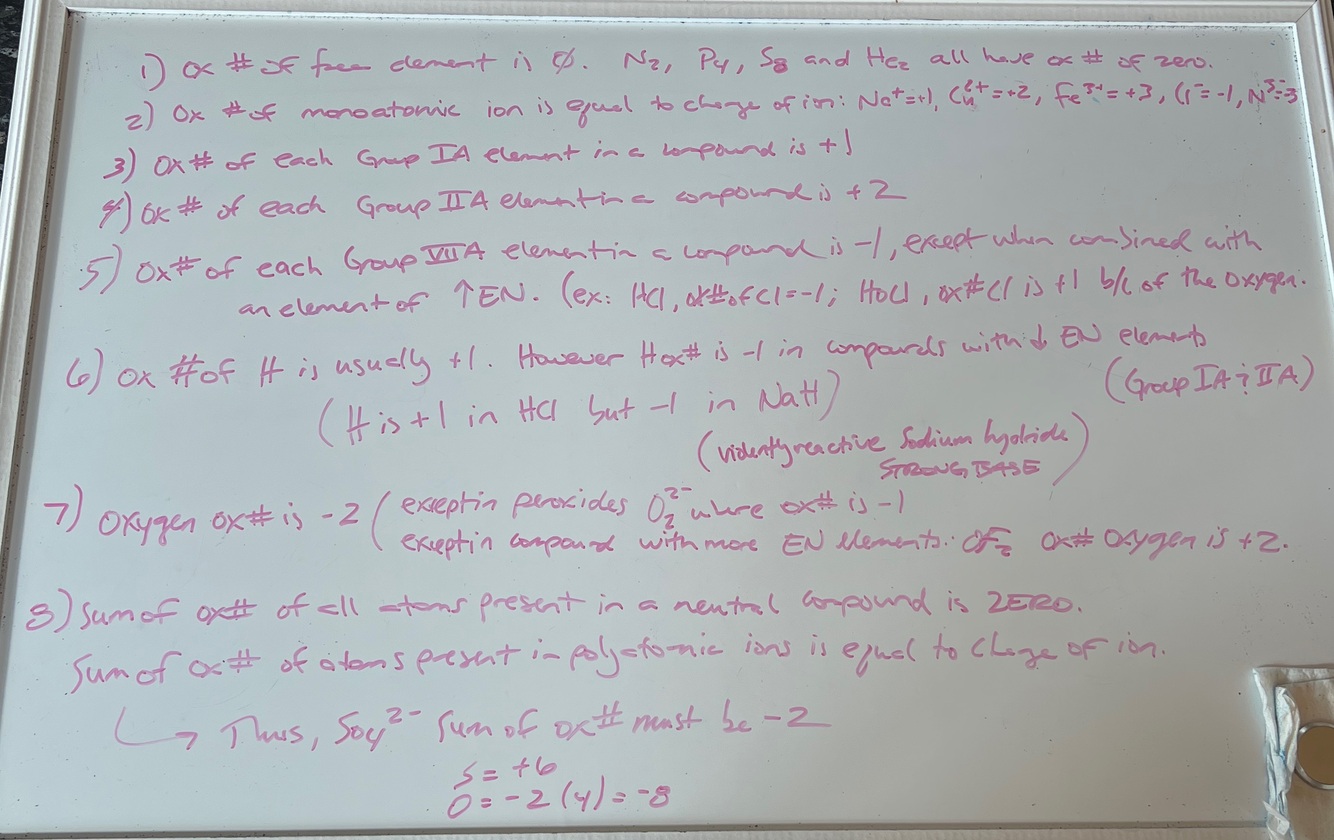 1) Ox # of free element is ∅. N₂, P₄, S₈ and He₂ all have ox # of zero.
2) Ox # of monoatomic ion is equal to charge of ion: Na⁺=+1, Cu²⁺=+2, Fe³⁺=+3, Cl⁻=-1, N³⁻=-3
3) Ox# of each Group IA element in a compound is +1
4) Ox# of each Group IIA element in a compound is +2
5) Ox# of each Group VIIA element in a compound is -1, except when combined with
an element of ↑EN. (ex: HCl, ox# of Cl=-1; HOCl, ox# Cl is +1 b/c of the oxygen.
6) Ox # of H is usually +1. However H ox# is -1 in compounds with ↓ EN elements
(Group IA ; IIA)
(H is +1 in HCl but -1 in NaH)
(violently reactive Sodium hydride)
STRONG BASE
7) Oxygen ox# is -2 (except in peroxides O₂²⁻ where ox# is -1
except in compound with more EN elements: OF₂ ox# oxygen is +2.
8) Sum of ox# of all atoms present in a neutral compound is ZERO.
Sum of ox# of atoms present in polyatomic ions is equal to charge of ion.
↳ Thus, SO₄²⁻ sum of ox# must be -2
S = +6
O = -2 (4) = -8